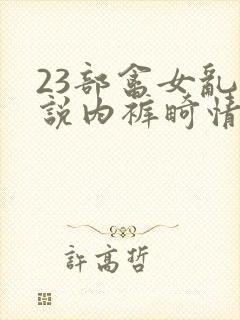 23部畲女亂
説内裤畸情
許高哲